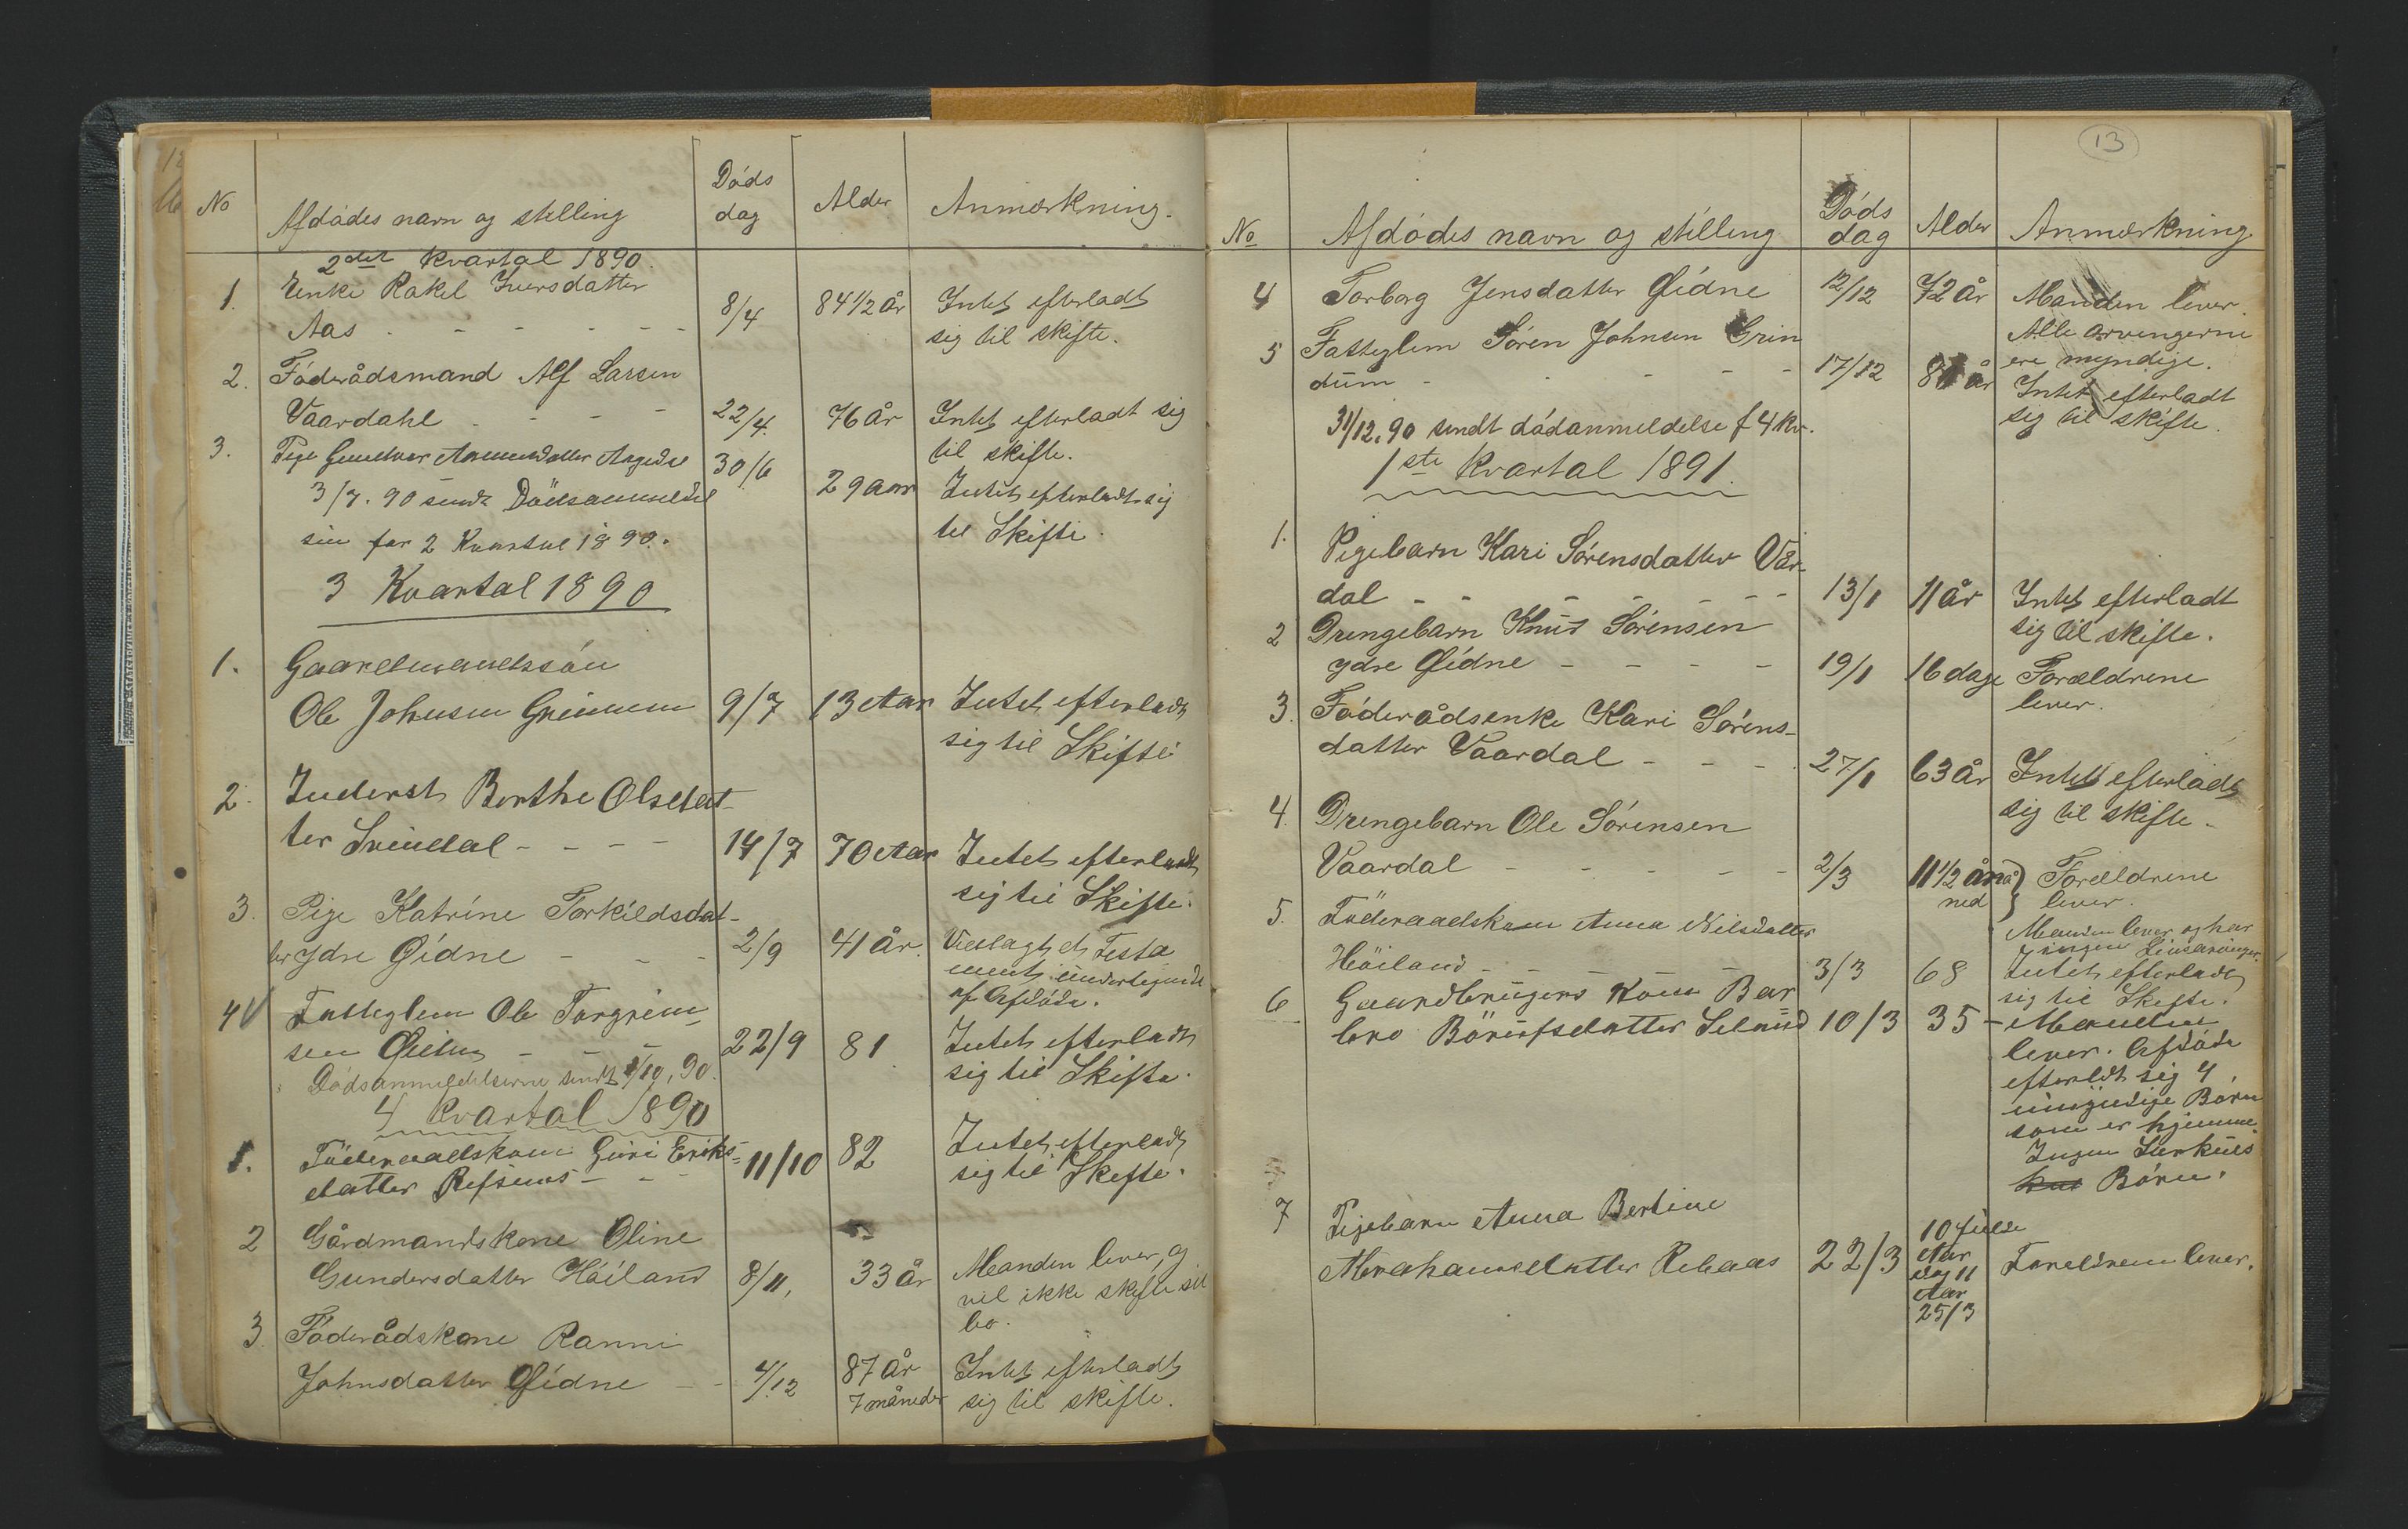 No
Afdödes navn og stilling
Döds
dag
Alder
Anmærkning.
2det kvartal 1890.
1. Enke Rakel Iversdatter
Aas - - - - - 8/4 84 1/2 år Intet efterladt
sig til skifte.
2. Föderådsmand Alf Larsen
Vaardahl - - - 22/4. 76 år Intet efterladt sig
til skifte.
3. Pige 30/6 29 aar Intet efterladt sig
til Skifte.
3/7. 90 sendt Dödsanmeldel
sen for 2 Kvartal 1890.
3 Kvartal 1890
1. Gaardmandssön
Ole Johnsen 9/7 13 Aar Intet efterladt
sig til Skifte
2. Inderst Berthe Olsdat-
ter Svindal - - - - 14/7 70 Aar Intet efterladt
sig til Skifte.
3. Pige Katrine Torkildsdat-
ter ydre Øidne - - - 2/9 41 år. Vedlagt et Testa
ment undertegnet
af Afdöde.
4 Fattiglem Ole Torgrim-
sen - - - 22/9 81. Intet efterladt
sig til Skifte.
Dödsanmeldelserne sendt 1/10, 90.
4 kvartal 1890
1. Föderaadskone Guri Eriks-
datter Refsnes - - - 11/10 82 Intet efterladt
sig til Skifte.
2 Gårdmandskone Oline
Gundersdatter Höiland 8/11, 33 år Manden lever, og
vil ikke skifte sit
bo.
3. Föderådskone Ranni
Johnsdatter Øidne - - 4/12 87 år
7 måneder Intet efterladt
sig til skifte.
13
No
Afdödes navn og stilling
Döds
dag
Alder
Anmærkning.
4 Torborg Jensdatter Øidne 12/12 72 år Manden lever.
Alle arvingerne
ere myndige.
5 Fattiglem Sören Johnsen Grin
dum - - - - - 17/12 år Intet efterladt
sig til skifte.
31/12. 90 sendt dödanmeldelse f 4 kv.
1ste kvartal 1891.
1. Pigebarn Kari Sörensdatter Vår-
dal - - - - - - 13/1 11 år Intet efterladt
sig til skifte.
2 Drengebarn Knud Sörensen
ydre Øidne - - - - 19/1 16 dage Forældrene
lever.
3. Föderådsenke Kari Sörens-
datter Vaardal - - - 27/1 63 år Intet efterladt
sig til skifte.
4. Drengebarn Ole Sörensen
Vaardal - - - - - 2/3 11 1/2 må
ned } Forældrene
lever.
5. Föderaadskone Anna Nilsdatter
Höiland - - - - - 3/3 68 Manden lever og har
ingen Livsarvinger.
Intet efterladt
sig til Skifte.
6 Gaardbrugers Kone Bar
bro Börufsdatter Seland 10/3 35 - Manden
lever. Afdöde
efterladt sig 4
umyndige Börn
som er hjemme.
Ingen Særkuls
Börn.
7 Pigebarn Anna Bertine
Abrahamsdatter Rebaas 22/3 10 fulde
Aar
og 11
Aar
25/3 Forældrene lever.